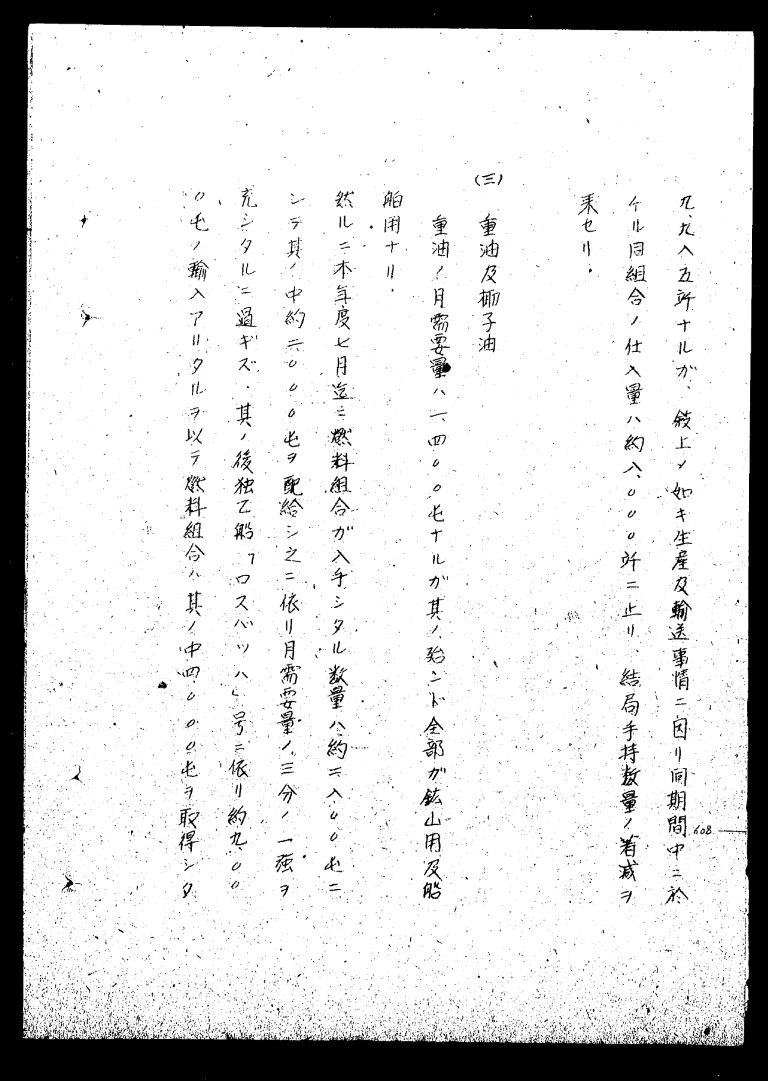 九、九八五竏ナルガ、敍上ノ如キ生産及輸送事情ニ因リ同期間中ニ於
ケル同組合ノ仕入量ハ約八、〇〇〇竏ニ止リ 結局手持数量ノ著減ヲ
来セリ.
(三) 重油及椰子油
重油ノ月需要量ハ一、四〇〇屯ナルガ其ノ殆ンド全部ガ鉱山用及船
舶用ナリ.
然ルニ本年度七月迄ニ燃料組合ガ入手シタル数量ハ約二八〇〇屯ニ
シテ其ノ中約二〇〇〇屯ヲ配給シ之ニ依リ月需要量ノ三分ノ一強ヲ
充シタルニ過ギズ.其ノ後独乙船「ロスバッハ」号ニ依リ約九、〇〇
〇屯ノ輸入アリタルヲ以テ燃料組合ハ其ノ中四〇〇〇屯ヲ取得シタ
608